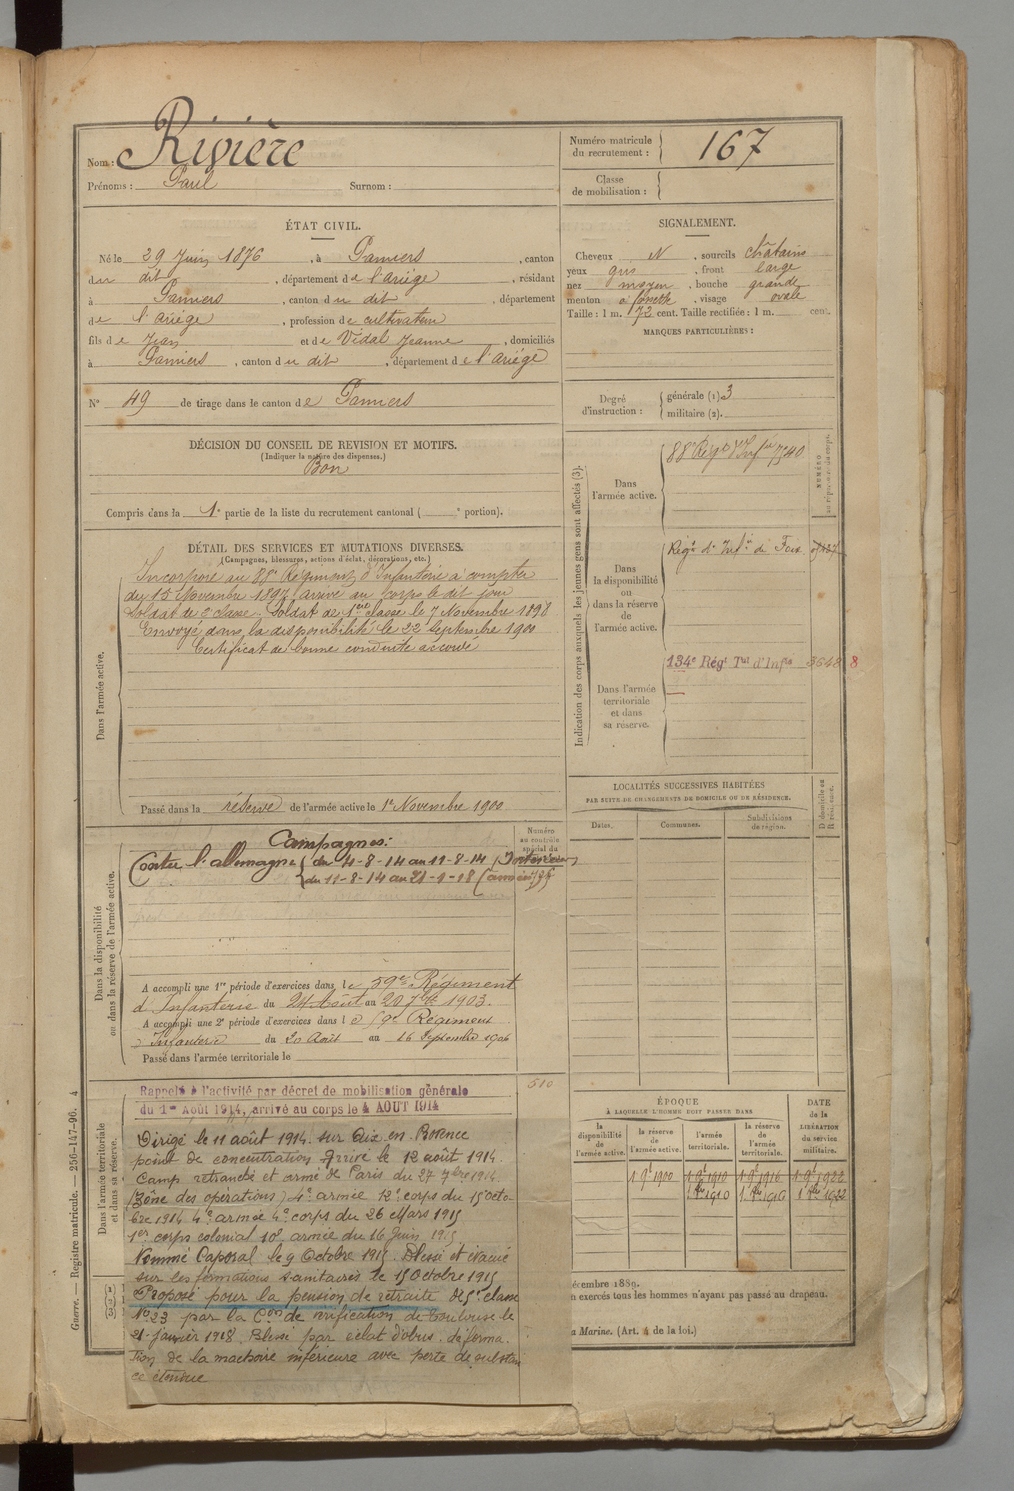 Nom : Rivière
Prénoms : Paul Surnom :
Numéro matricule du recrutement : 167
Classe de mobilisation :
ÉTAT CIVIL.
Né le 29 Juin 1876, à Pamiers, canton
du dit, département de l'Ariège, résidant
à Pamiers, canton du dit, département
de l'Ariège, profession de cultivateur
fils de Jean et de Vidal Jeanne, domiciliés
à Pamiers, canton du dit, département de l'Ariège
N° 49 de tirage dans le canton de Pamiers
SIGNALEMENT.
Cheveux N, sourcils châtains
yeux gris, front large
nez moyen, bouche grande
menton à fossette, visage ovale
Taille : 1 m. 72 cent. Taille rectifiée : 1 m. cent.
MARQUES PARTICULIÈRES :
Degré d'instruction : générale (1) 3
militaire (2).
DÉCISION DU CONSEIL DE REVISION ET MOTIFS.
(Indiquer la nature des dispenses.)
Bon
Compris dans la 1e partie de la liste du recrutement cantonal ( e portion).
DÉTAIL DES SERVICES ET MUTATIONS DIVERSES.
(Campagnes, blessures, actions d'éclat, décorations, etc.)
Dans l'armée active.
Incorporé au 88e Régiment d'Infanterie à compter
du 15 Novembre 1897 arrivé au corps le dit jour
Soldat de 2e classe. Soldat de 1ère classe le 7 Novembre 1898
Envoyé dans la disponibilité le 22 Septembre 1900
Certificat de bonne conduite accordé
Passé dans la réserve de l'armée active le 1er Novembre 1900
Indication des corps auxquels les jeunes gens sont affectés (3).
NUMÉRO
Dans l'armée active.
88e Régt d'Infie 7540
Dans la disponibilité ou dans la réserve de l'armée active.
Régt d'Infie de Foix
Dans l'armée territoriale et dans sa réserve.
134e Régt Tal d'Infie
LOCALITÉS SUCCESSIVES HABITÉES
PAR SUITE DE CHANGEMENTS DE DOMICILE OU DE RÉSIDENCE.
Dates. Communes. Subdivisions de région. D domicile ou R résidence.
Dans la disponibilité ou dans la réserve de l'armée active.
Numéro au contrôle spécial du
Campagnes :
Contre l'allemagne (du 4-8-14 au 11-8-14 (Intérieur)
(du 11-8-14 au 21-1-18 (armées)
A accompli une 1re période d'exercices dans le 59e Régiment
d'Infanterie du 24 Août au 20 7bre 1903.
A accompli une 2e période d'exercices dans le 59e Régiment
d'Infanterie du 20 Août au 16 Septembre 1906
Passé dans l'armée territoriale le
Dans l'armée territoriale et dans sa réserve.
510
Rappelé à l'activité par décret de mobilisation générale
du 1er Août 1914, arrivé au corps le 4 AOUT 1914
Dirigé le 11 août 1914 sur Aix en Provence
point de concentration Arrivé le 12 août 1914.
Camp retranché et armé de Paris du 27 7bre 1914
(Zône des opérations) 4e armée 12e corps du 15 octo-
bre 1914 4e armée 4e corps du 26 Mars 1915
1er corps colonial 10e armée du 16 Juin 1915
Nommé Caporal le 9 Octobre 1915. Blessé et évacué
sur les formations sanitaires le 15 Octobre 1915
Proposé pour la pension de retraite de 5e classe
No 23 par la Con de vérification de Toulouse le
21 janvier 1918. Blessé par éclat d'obus. déforma-
tion de la machoire inférieure avec perte de substan
ce étendue
ÉPOQUE
À LAQUELLE L'HOMME DOIT PASSER DANS
DATE de la LIBÉRATION du service militaire.
la disponibilité de l'armée active. la réserve de l'armée active. l'armée territoriale. la réserve de l'armée territoriale.
1 9e 1900 1 9e 1910 1 9e 1916 1 9e 1922
1 8bre 1910 1 8bre 1916 1 8bre 1922
écembre 1889.
n exercés tous les hommes n'ayant pas passé au drapeau.
a Marine. (Art. 4 de la loi.)
Guerre. — Registre matricule. — 256-147-96. 4